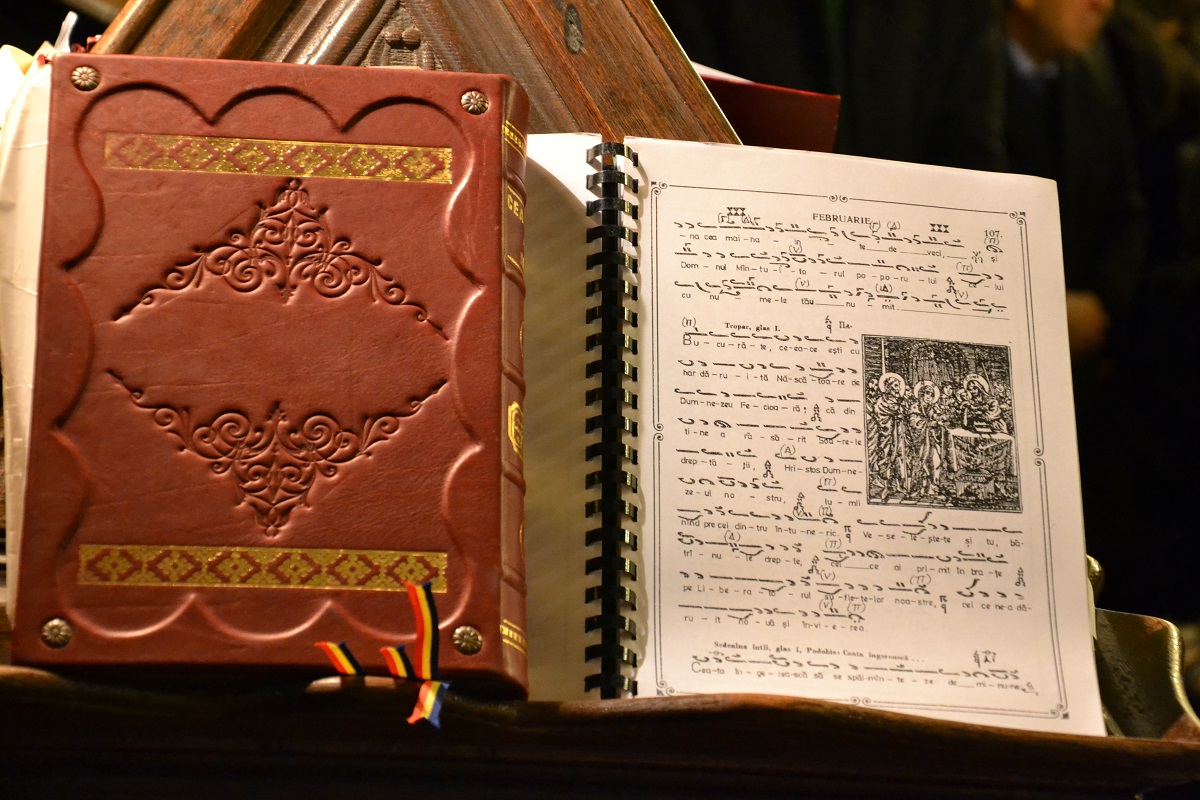 CEA
FEBRUARIE
107.
- na cea mai - na - te de veci, și
Dom - nul Mîn - tu - i - to - rul po - po - ru - lui lui
cu nu me - le tău nu - mit.
Tropar, glas I. Πα.
Bu - cu - ră - te, ceea - ce ești cu
har dă - ru - i - tă Născă - toa - re de
Dum - ne - zeu Fe - cioa - ră; că din
ti - ne a ră - să - rit Soa - re - le
drep - tă - ții, Hri - stos Dum - ne -
ze - ul no - stru, lu - mi
nînd pre cei din - tru în - tu - ne - ric. Ve - se - le - ște - te și tu, bă -
trî - nu - le drep - te, cel ce ai pri - mit în bra - țe
pe Li - be - ra - to - rul su - fle - te - lor noa - stre, cel ce ne - a dă -
ru - it no - uă și în - vi - e - rea.
Sedealna întîi, glas I, Podobie: Ceata îngerească...
Cea - ta în - ge - rea - scă să se spăi - mîn - te - ze de mi - nu - nea